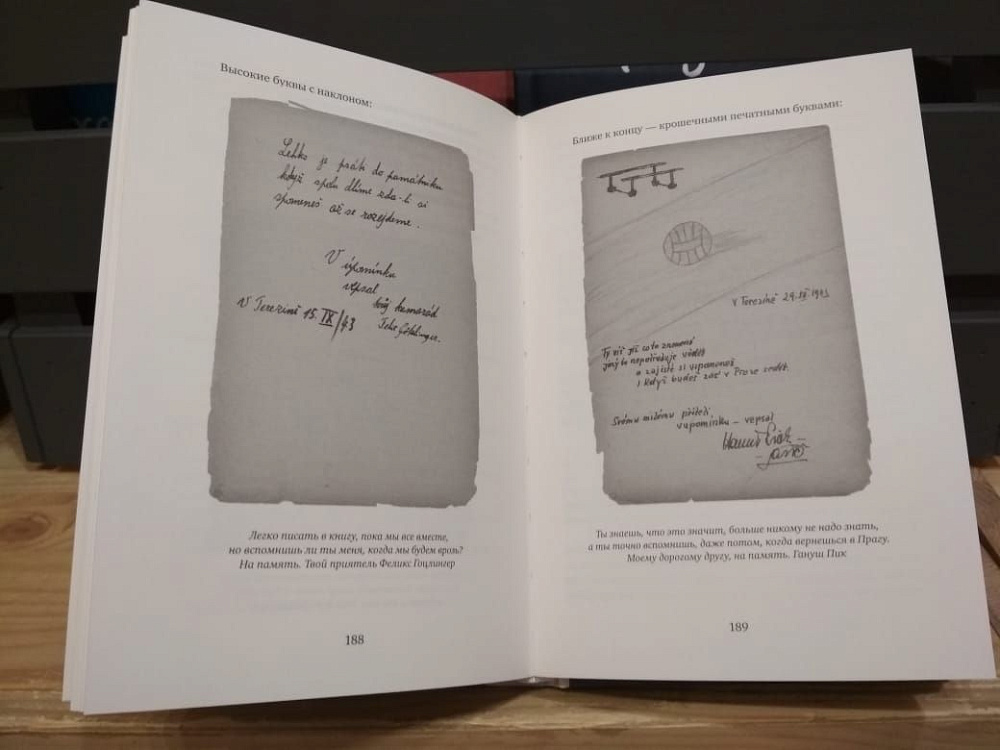 Высокие буквы с наклоном:
Lehko je psáti do památníku
když spolu dlíme zda-li si
spomeneš až se rozejdeme.
V upomínku
vepsal
tvůj kamarád
V Terezíně 15. IX/43
Легко писать в книгу, пока мы все вместе,
но вспомнишь ли ты меня, когда мы будем врозь?
На память. Твой приятель Феликс Гоцлингер
188
Ближе к концу — крошечными печатными буквами:
V Terezíně 29. 1943
Ty víš již co to znamená
jiný to nepotřebuje vědět
a zajisté si vzpomeneš
i když budeš zas v Praze
Svému milému příteli
vzpomínku – vepsal
Ты знаешь, что это значит, больше никому не надо знать,
а ты точно вспомнишь, даже потом, когда вернешься в Прагу.
Моему дорогому другу, на память. Гануш Пик
189